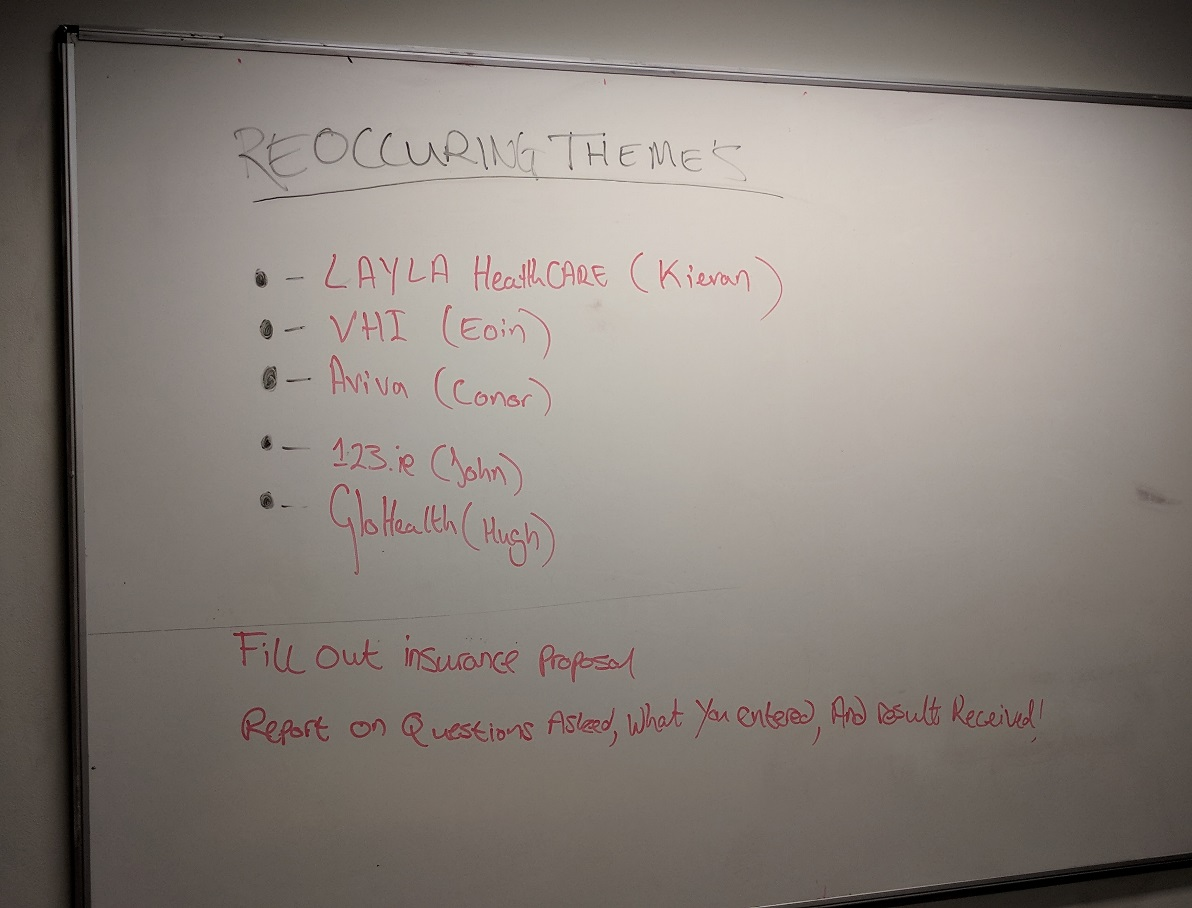 REOCCURING THEME'S
- LAYLA HealthCARE (Kieran)
- VHI (Eoin)
- Aviva (Conor)
- 123.ie (John)
- GloHealth (Hugh)
Fill Out insurance Proposal
Report on Questions Asked, What You entered, And result Received!